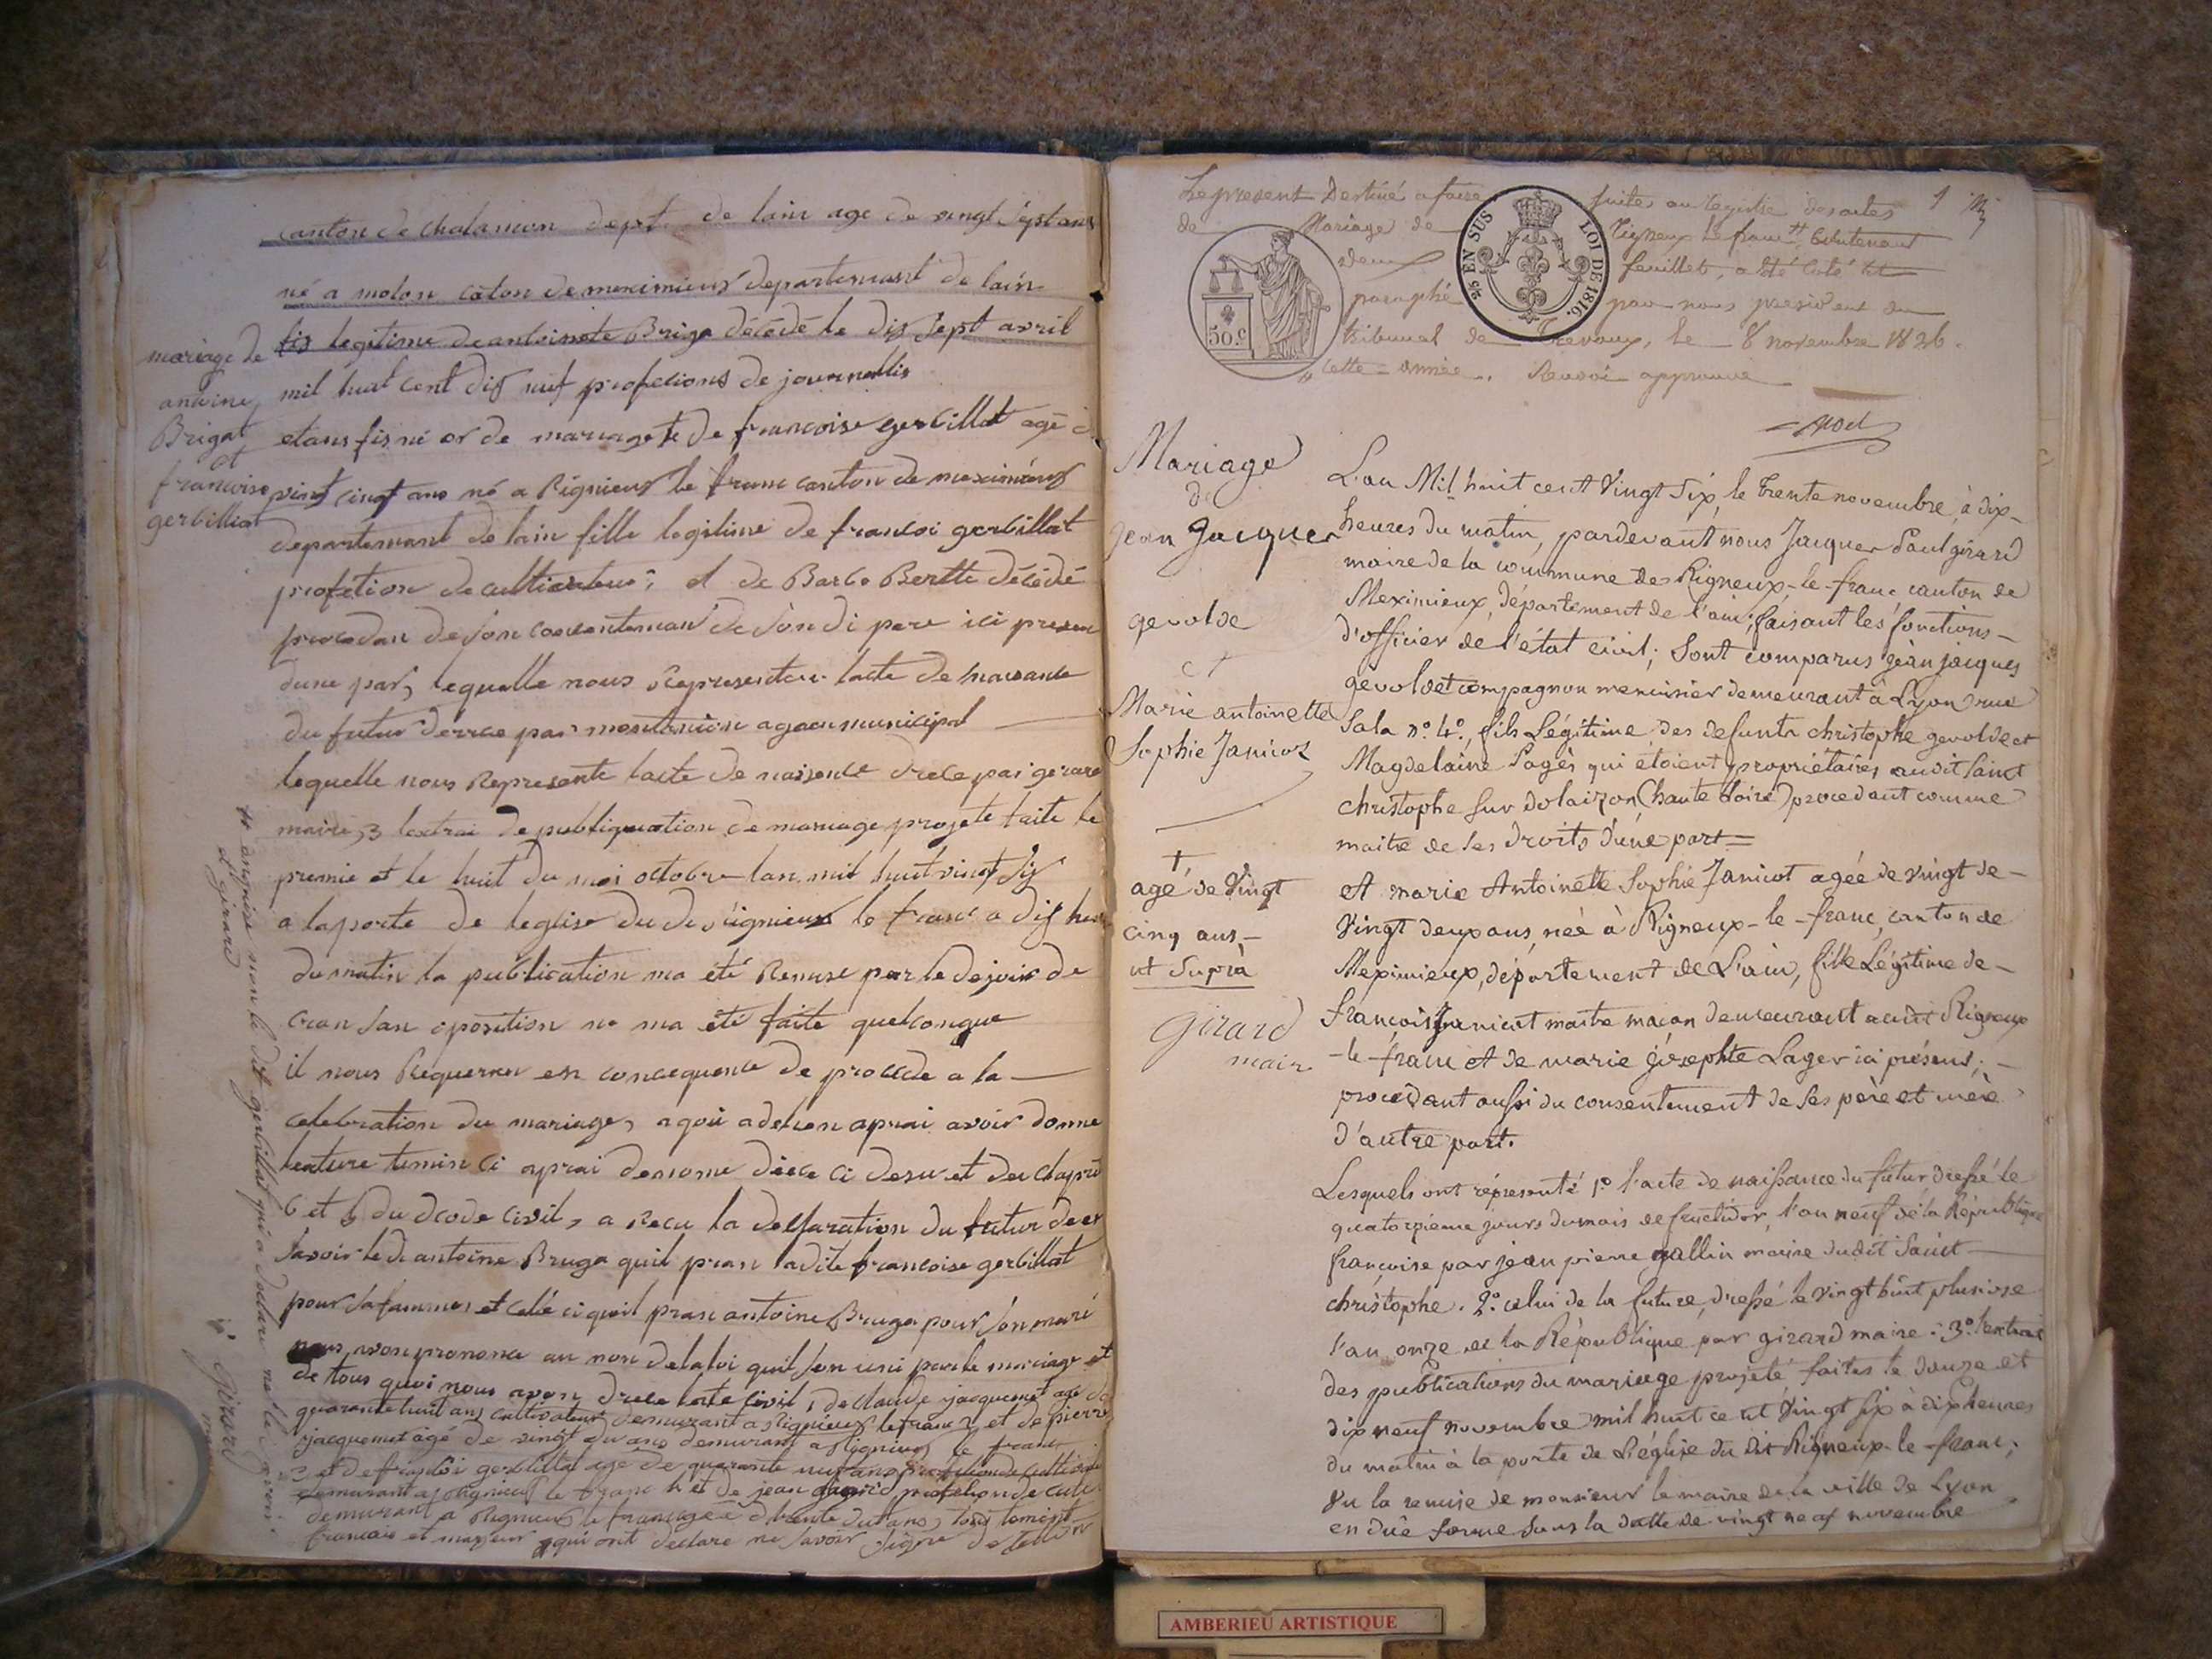 canton de chalamon dept. de lain age de vingt sept ans
né a molon caton de meximieux departemant de lain
fis legitime de antoinete Briga décédé le dix sept avril
mil huit cent dix nuf profecions de journallis
mariage de
antoine
Brigat
et
francoise
gerbilliat
etans fis né or de mariage et de francoise gerbillat agé
vint cinqt ans né a Rignieux le franc canton de meximieux
departemant de lain fille legitime de francoi gerbillat
profetion de cultivateur, et de Barbe Bertte décédé
procedan de son consenteman de son di pere ici presen
dune par, lequelle nous Representere lacte de naisance
du futur
lequelle nous Represente lacte de naissence drece pai gerard
maire, 3 lextrai de publiquation de mariage projete faite le
premie et le huit du moi octobre lan mil huit vingt six
a la porte de leglise du di Rignieux le franc a dix heu
du matin la publication ma été Remise par le
san oposition ne ma été faite quelconque
il nous Requerer en concequence de procede a la
celebration du mariage, a qoi adetion aprai avoir donne
lecture temin ci aprai denome diece ci desu et du chapit
6 et 5 du dcode civil, a Recu la declaration du futur
savoir le di antoine Bruga quil pran ladite francoise gerbillat
pour sa fammes et celle ci quoil pran antoine Bruga pour son mari
nous avon prononce au non de la loi quil son uni par le mariage et
de tous quoi nous avons drece lacte civil, de claude jacquemet agé de
quarante huit ans cultivateur demurant a Rignieux le franc, et de pierre
jacquemet agé de vingt ans demurant a Rignieux le franc
3 et de francoi gerbillat age de quarante nuf ans profetion de cultiv
demurant a Rignieux le franc et de jean profetion de culti
demurant a Rignieux le franc agé de trente
francais et majeur qui ont declare ne savoir signe de
et girard
girard
Le present Destiné a faire suite au registre des actes
de Mariage de Rigneux le franc, Contenant
deux feuillets, a été coté et
paraphé par nous president du
tribunal de Trevoux, le 8 novembre 1826.
cette année. Renvoi approuvé
50.c
2/5 EN SUS LOI DE 1816.
1
Mariage
de
Jean Jacques
gevolde
et
Marie antoinette
Sophie Janicot
+
agé de Vingt
cinq ans,-
ut Suprà
Girard
maire
L'an Mil huit cent Vingt Six, le trente novembre, à dix-
heures du matin, pardevant nous Jacques Paul girard
maire de la commune des Rigneux-le-franc canton de
Meximieux, département de l'ain, faisant les fonctions-
d'officier de l'état civil; Sont comparus jean jacques
gevoldet compagnon menuisier demeurant à Lyon rue
Sala n°. 4°, fils Légitime des defunts christophe gevolde et
Magdelaine Pagès qui étoient propriétaires audit Saint
christophe Sur dolaizon (haute Loire) procedant comme
maitre de ses droits d'une part=
et marie Antoinette Sophie Janicot agée de vingt de-
Vingt deux ans, née à Rigneux-le-franc, canton de
Meximieux, département de L'ain, fille Légitime de-
francois Janicot maitre macon demeurant audit Rigneux
-le-franc et de marie josephte Lager ici présens;-
procédant aussi du consentement de ses père et mère
d'autre part.
Lesquels ont répresenté 1° l'acte de naissance du futur dressé le
quatorzieme jours du mois de fructidor, l'an neuf de la République
francoise par jean pierre gallin maire dudit Saint
christophe. 2°. celui de la future, dressé le vingt huit pluviose
l'an onze de la République par girard maire: 3° l'extrai
des publications du mariage projeté faites le douze et
dix neuf novembre mil huit cent Vingt Six à dix heures
du matin à la porte de L'église du dit Rigneux-le-franc;
vu la remise de monsieur le maire de la ville de Lyon,
en dûe forme sous la datte de vingt neuf novembre
AMBERIEU ARTISTIQUE